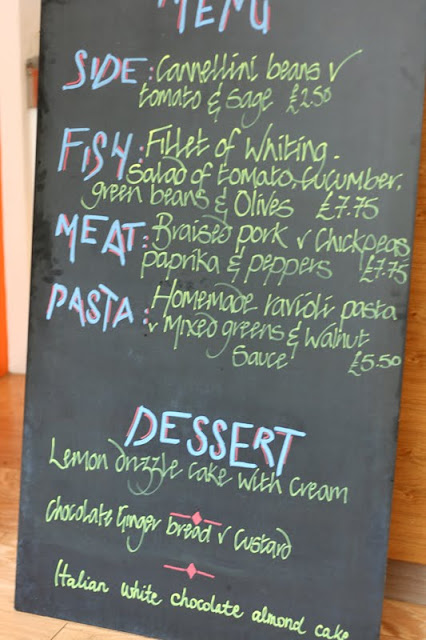 MENU
SIDE: Cannellini beans v
tomato & sage £2.50
FISH: Fillet of Whiting.
Salad of tomato, cucumber,
green beans & Olives £7.75
MEAT: Braised pork v Chickpeas
paprika & peppers £7.75
PASTA: Homemade ravioli pasta
v Mixed greens & Walnut
Sauce £5.50
DESSERT
Lemon drizzle cake with cream
Chocolate Ginger bread v Custard
Italian white chocolate almond cake